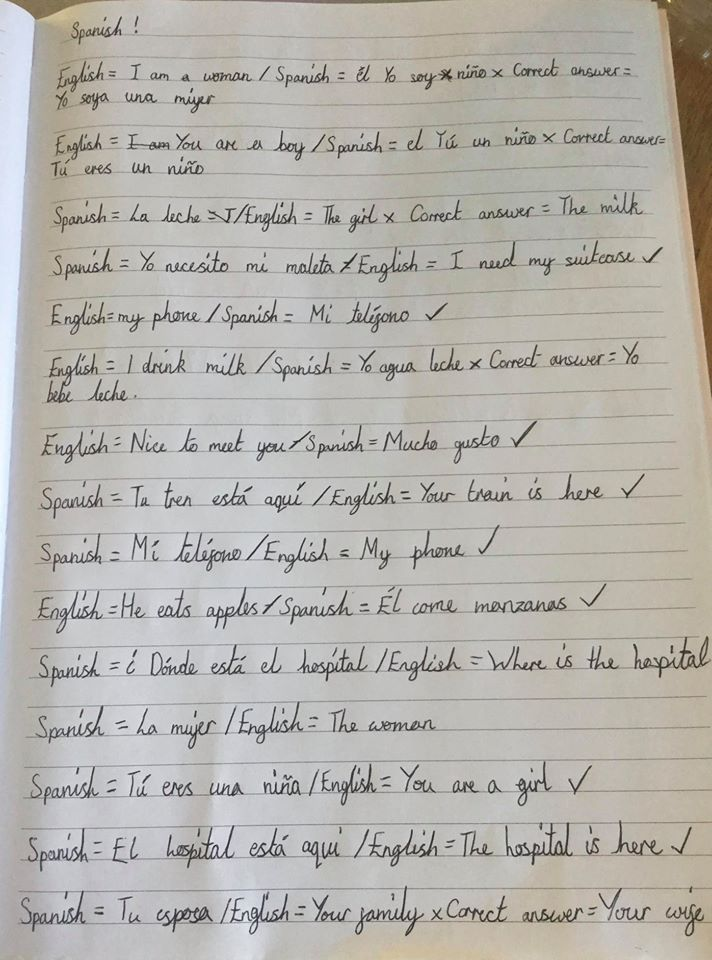 Spanish !
English = I am a woman / Spanish = él Yo soy niño x Correct answer =
Yo soya una mujer
English = I am You are a boy / Spanish = el Tú un niño x Correct answer=
Tú eres un niño
Spanish = La leche = I/English = The girl x Correct answer = The milk
Spanish = Yo necesito mi maleta / English = I need my suitcase ✓
English=my phone / Spanish = Mi teléfono ✓
English = I drink milk / Spanish = Yo agua leche x Correct answer = Yo
bebe leche.
English = Nice to meet you / Spanish = Mucho gusto ✓
Spanish = Tu tren está aquí / English = Your train is here ✓
Spanish = Mi teléfono / English = My phone ✓
English = He eats apples / Spanish = Él come manzanas ✓
Spanish = ¿ Dónde está el hospital / English = Where is the hospital
Spanish = La mujer / English = The woman
Spanish = Tú eres una niña / English = You are a girl ✓
Spanish = El hospital está aqui / English = The hospital is here ✓
Spanish = Tu esposa / English = Your family x Correct answer = Your wife